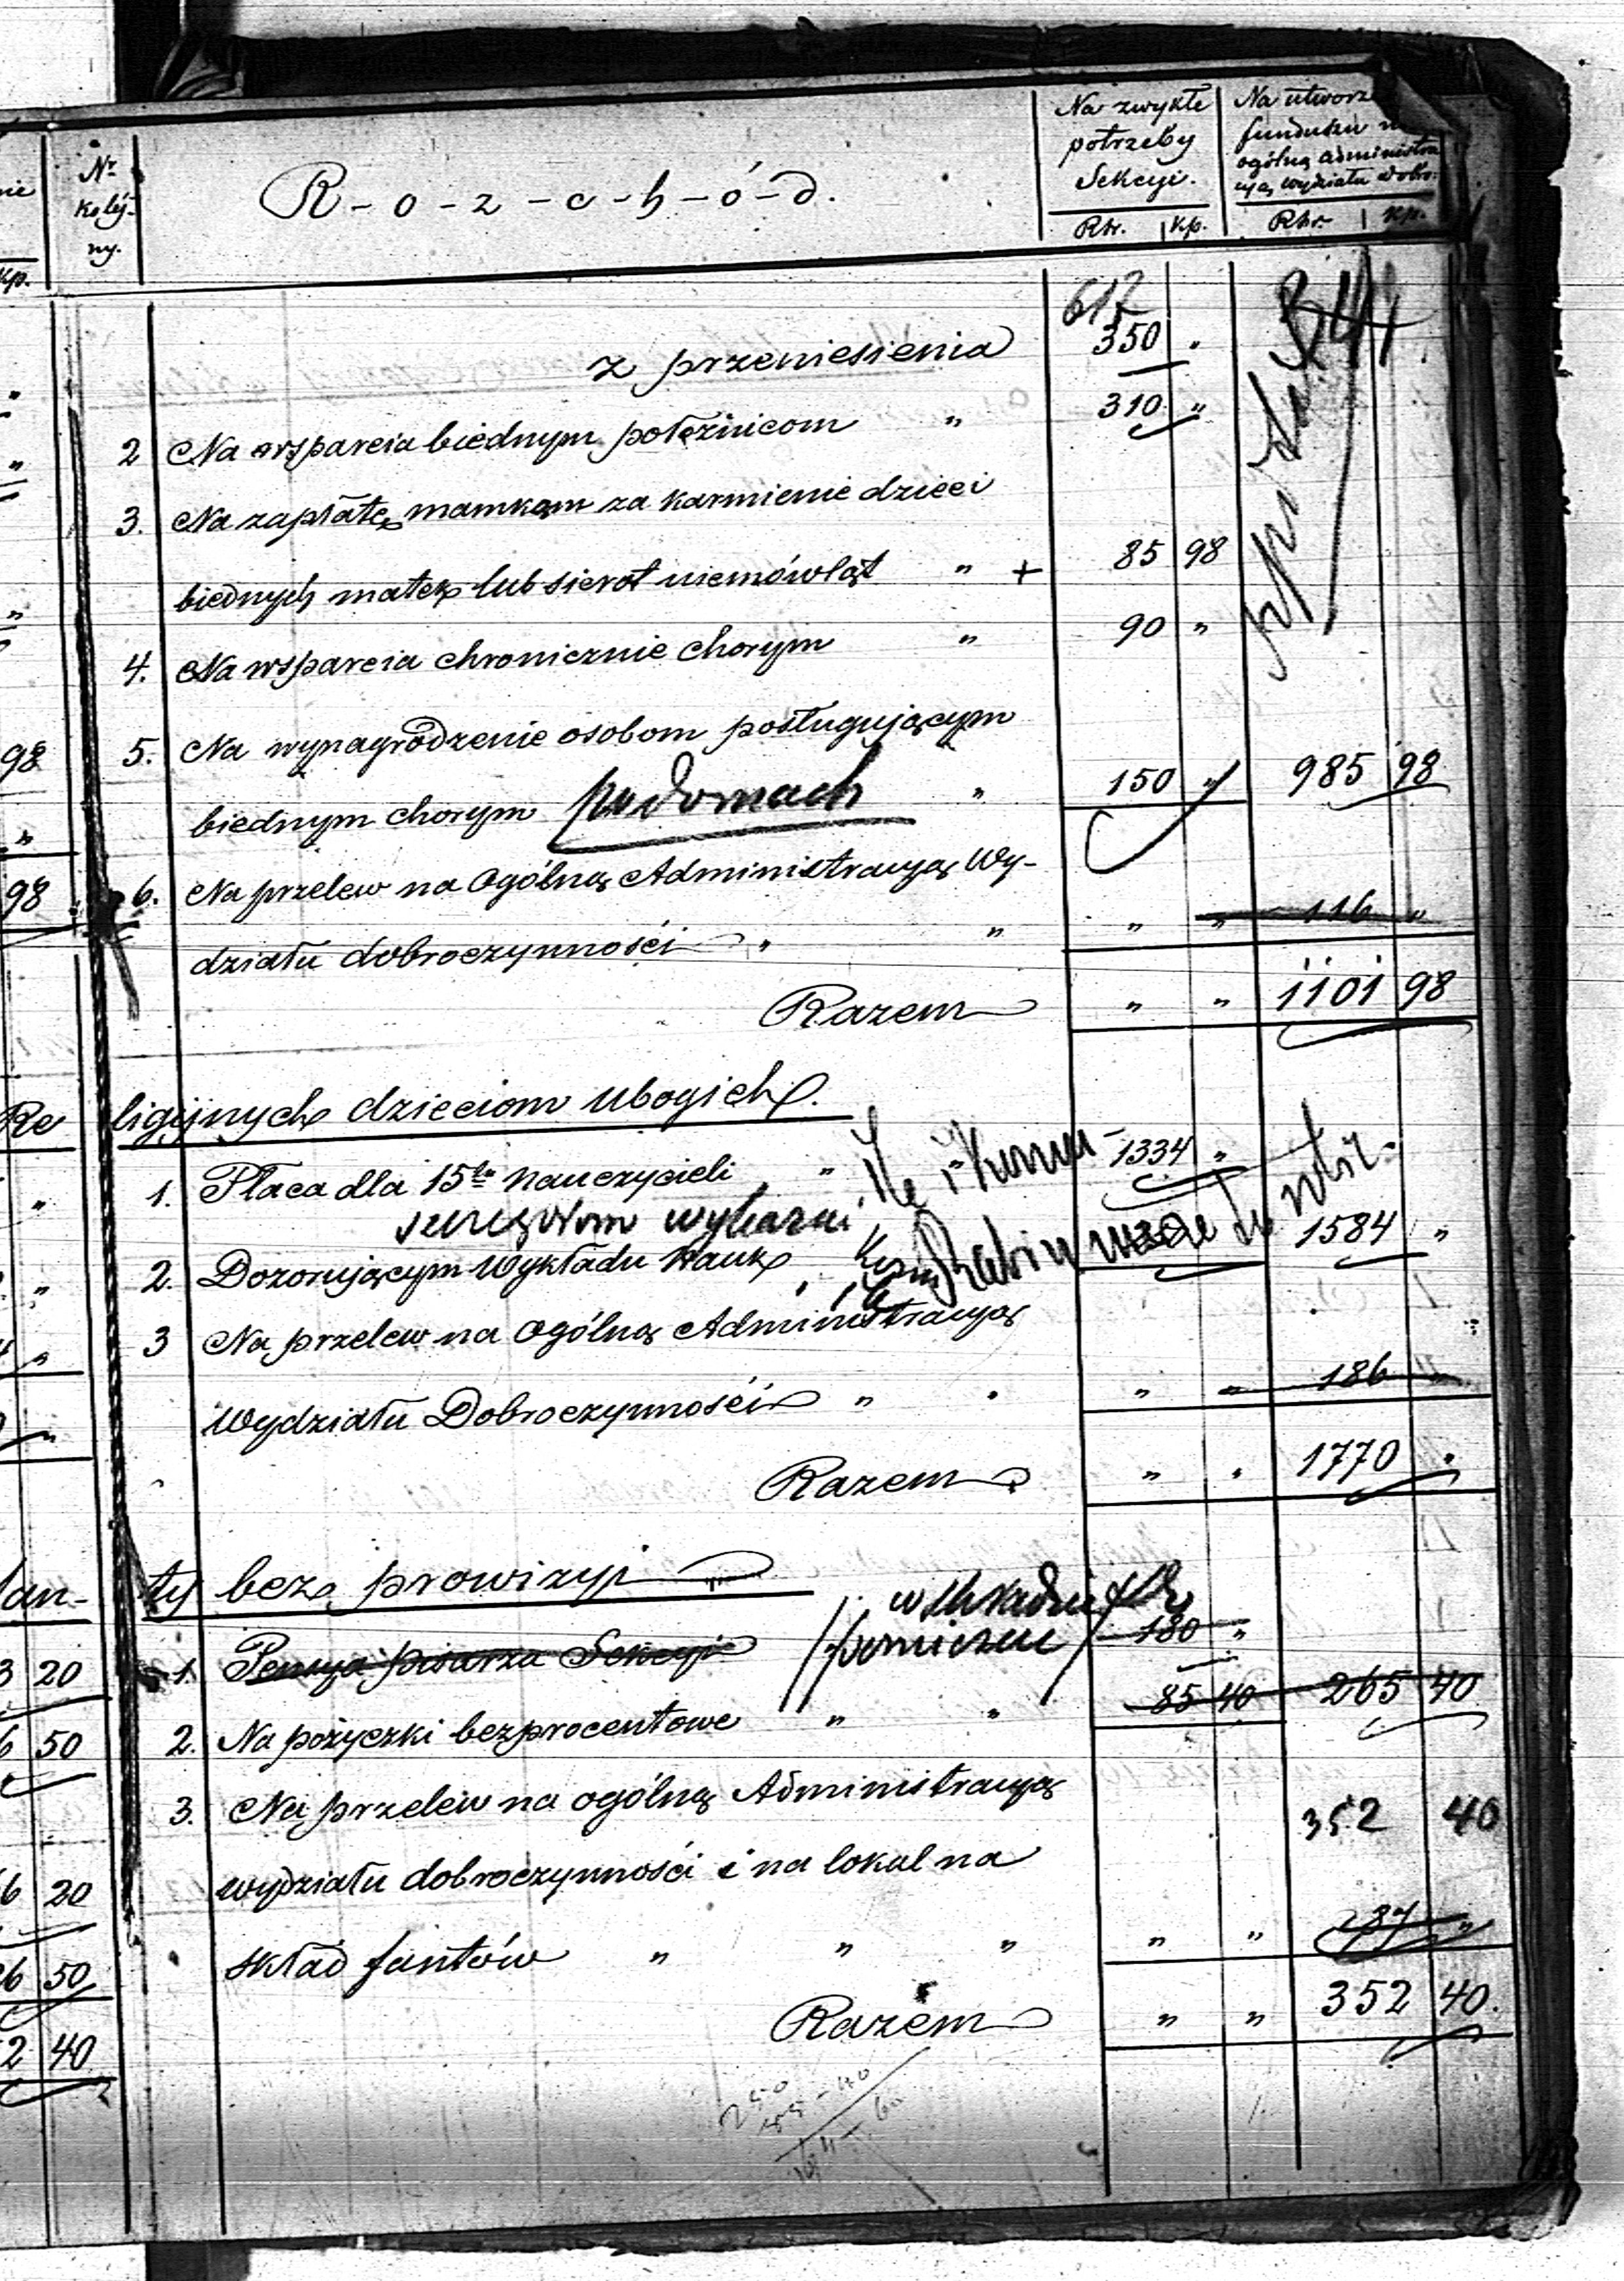 Nr kolej-ny.
R-o-z-c-h-ó-d.
Na zwykłe potrzeby Sekcyi.
Rbr. Kp.
funduszu
ogólną administra
cyą wydziału dobr.
Rbr. Kp.
Kp.
617
z przeniesienia 350 "
2 Na wsparcia biednym położnicom " 310 "
3. Na zapłatę mamkom za karmienie dzieci
biednych matek lub sierot niemówląt " + 85 98
4. Na wsparcia chronicznie chorym " 90 "
5. Na wynagrodzenie osobom posługującym
98
biednym chorym po domach " 150 " 985 98
6. Na przelew na Ogólną Administracyą Wy-
98
działu dobroczynności " " " " 116 "
Razem " " 1101 98
Re ligijnych dzieciom ubogich.
1. Płaca dla 15tu nauczycieli " 1334 "
2. Dozorującym wykładu Nauk 1584 "
3 Na przelew na ogólną Administracyą
Wydziału Dobroczynności " " " 186 "
Razem " " 1770 "
ty bez prowizyi
1. Pensya pisarza Sekcyi 180 "
3 20
2. Na pożyczki bezprocentowe " " 85 40 265 40
6 50
3. Na przelew na ogólną Administracyą
352 40
wydziału dobroczynności i na lokal na
6 20
skład fantów " " " " " 87 "
6 50
Razem " " 352 40.
2 40